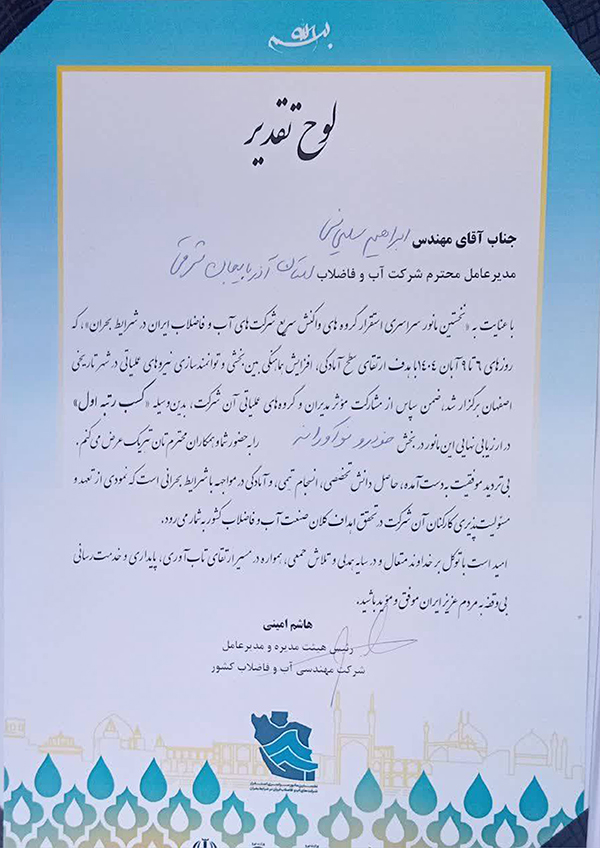 بسم الله
لوح تقدیر
جناب آقای مهندس ابراهیم سلیمانی
مدیرعامل محترم شرکت آب و فاضلاب استان آذربایجان شرقی
با عنایت به «نخستین مانور سراسری استقرار گروه های واکنش سریع شرکت‌های آب و فاضلاب ایران در شرایط بحران»، که
روزهای ۶ تا ۹ آبان ۱۴۰۴ با هدف ارتقای سطح آمادگی، افزایش هماهنگی بین‌بخشی و توانمندسازی نیروهای عملیاتی در شهر تاریخی
اصفهان برگزار شد، ضمن سپاس از مشارکت مؤثر مدیران و گروه‌های عملیاتی آن شرکت، بدین‌وسیله «کسب رتبه اول»
در ارزیابی نهایی این مانور در بخش خودرو را به حضور شما و همکاران محترم تان تبریک عرض می‌کنم.
بی‌تردید موفقیت به‌دست‌آمده، حاصل دانش تخصصی، انسجام تیمی، و آمادگی در مواجهه با شرایط بحرانی است که نمودی از تعهد و
مسئولیت‌پذیری کارکنان آن شرکت در تحقق اهداف کلان صنعت آب و فاضلاب کشور به شمار می‌رود.
امید است با توکل بر خداوند متعال و در سایه همدلی و تلاش جمعی، همواره در مسیر ارتقای تاب‌آوری، پایداری و خدمت‌رسانی
بی‌وقفه به مردم عزیز ایران موفق و مؤید باشید.
هاشم امینی
رئیس هیئت مدیره و مدیرعامل
شرکت مهندسی آب و فاضلاب کشور